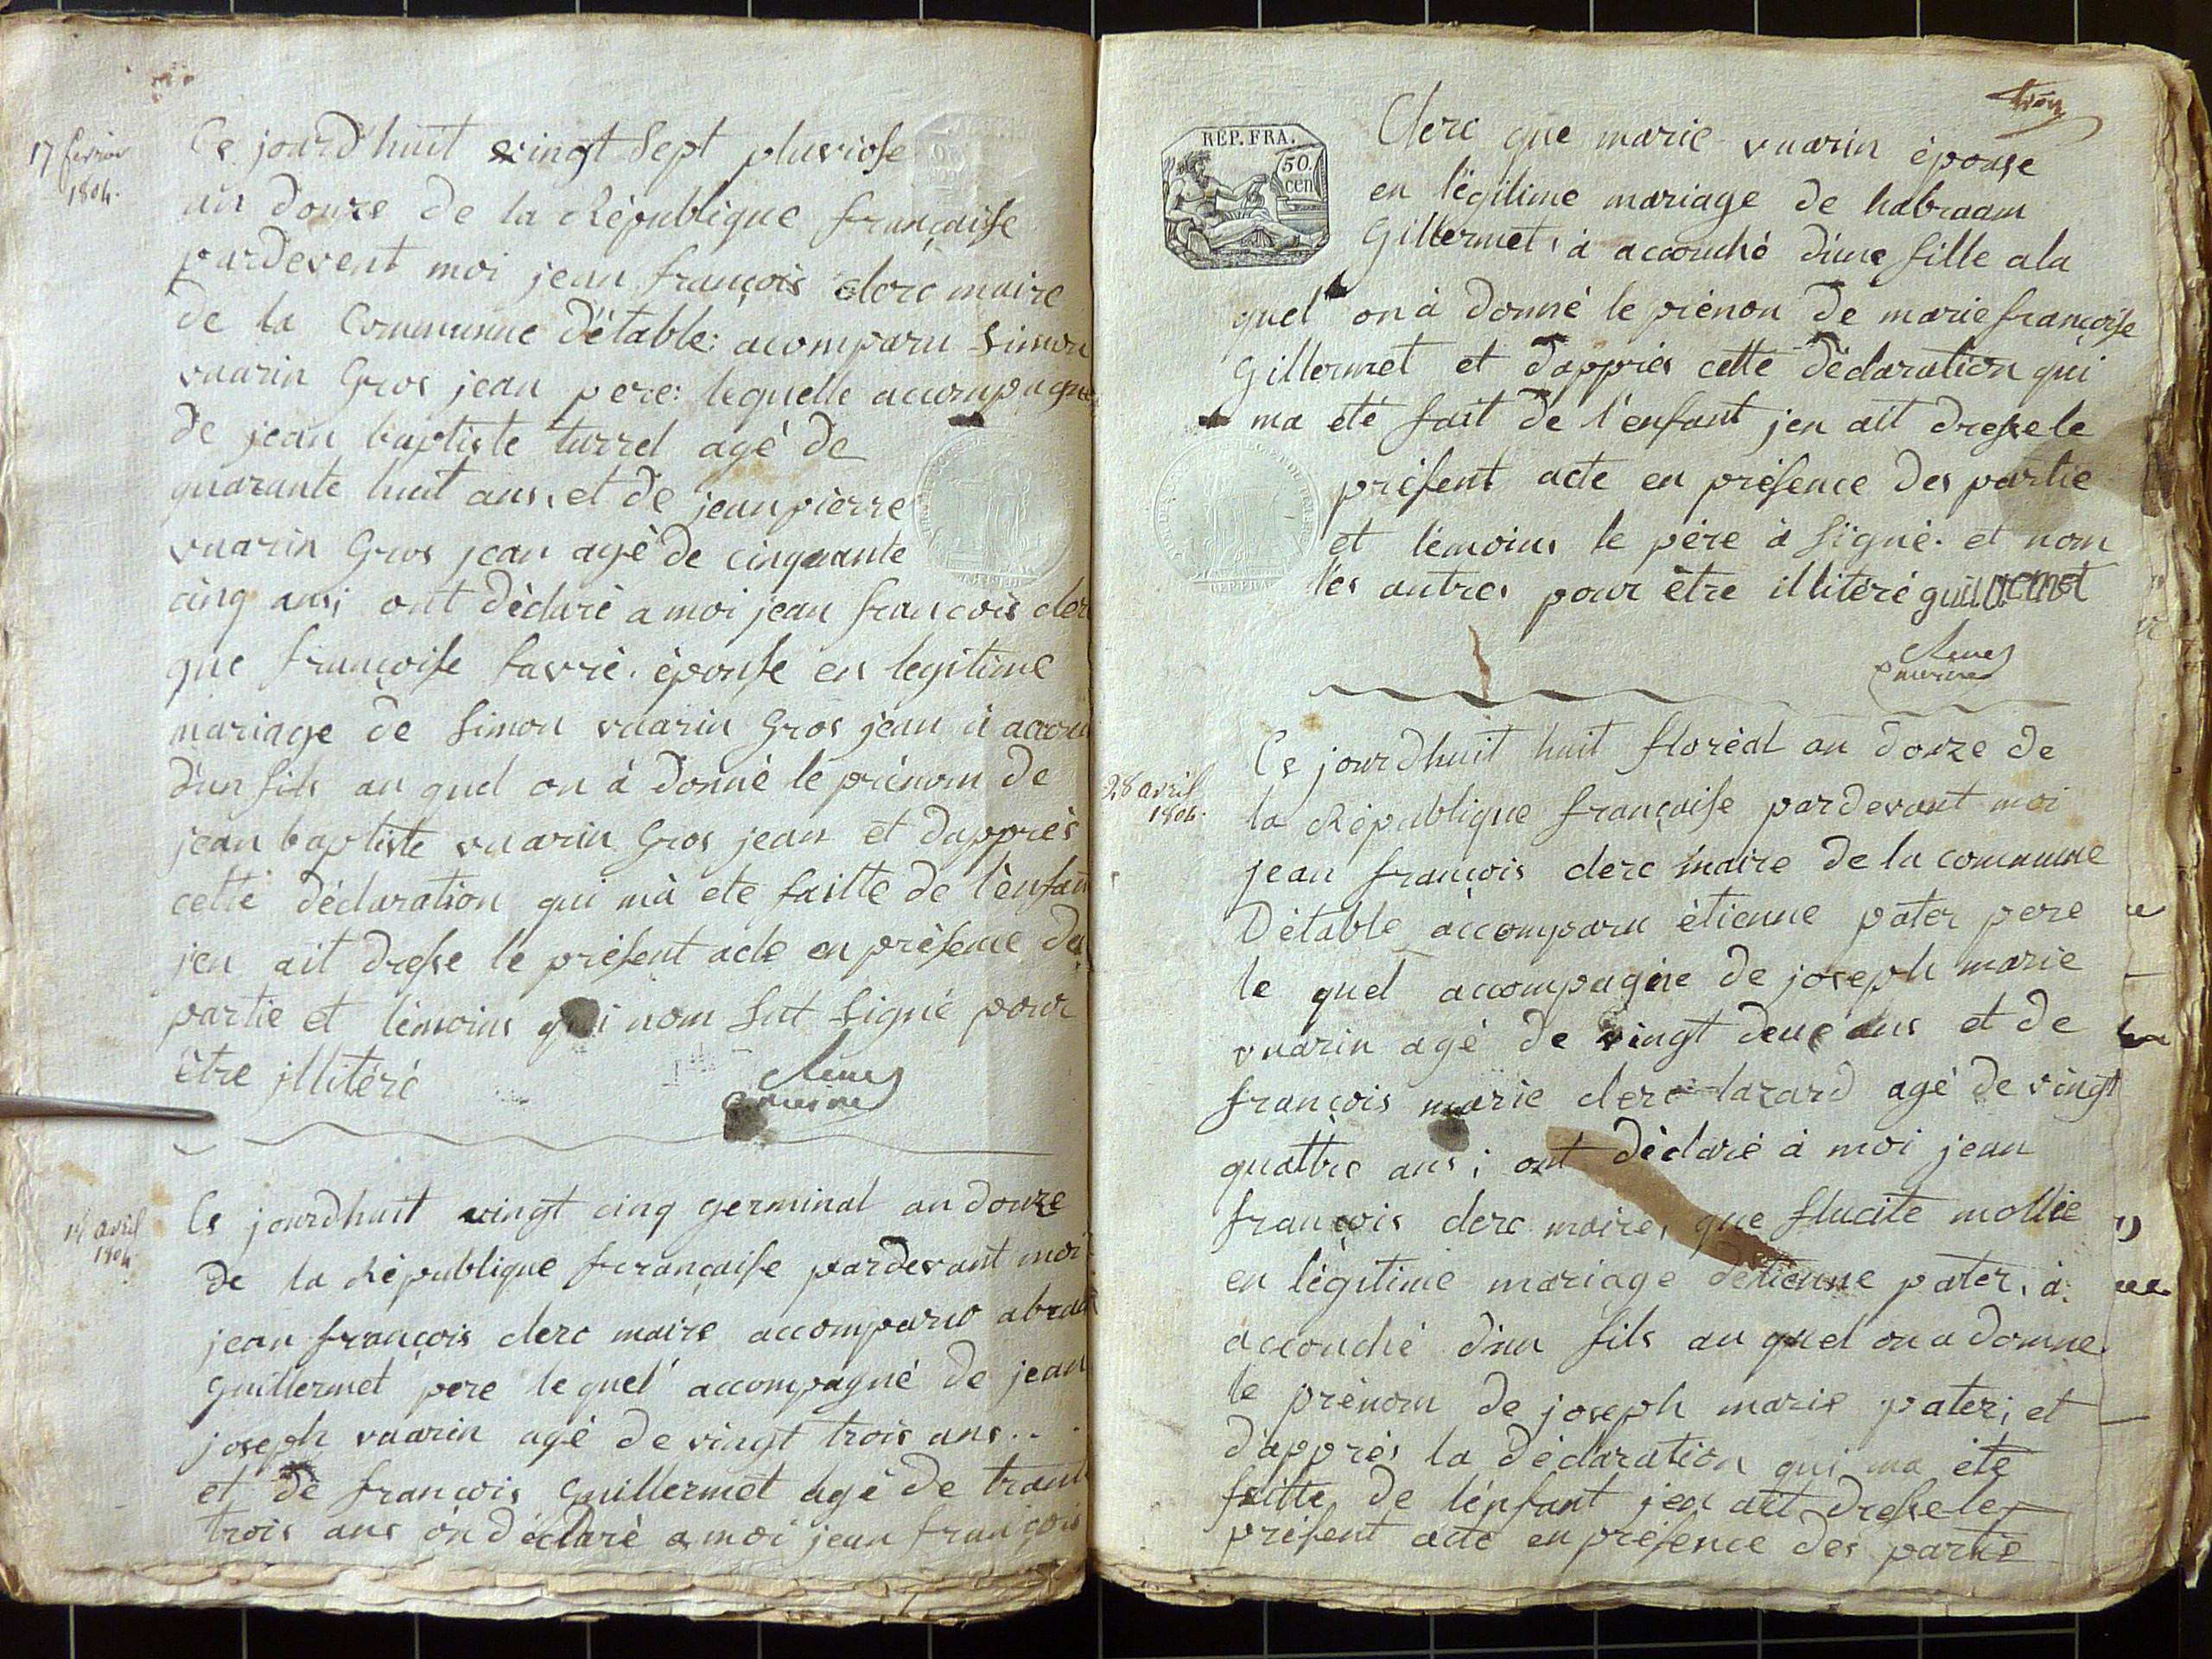 17 fevrier
1804.
Ce jourd'huit vingt sept pluviose
an douze de la République française
pardevent moi jean françois clerc maire
de la Commune d'étable: acomparu Simon
vuarin Gros jean pere: lequelle accompagné
de jean baptiste turrel agé de
quarante huit ans, et de jean pierre
vuarin Gros jean agé de cinquante
cinq ans; ont déclaré a moi jean françois cler
que françoise favre. épouse en legitime
mariage de Simon vuarin Gros jean à accou
d'un fils au quel on à donné le prénom de
jean baptiste vuarin Gros jean et dapprès
cette déclaration qui mà ete faitte de l'enfan
jen ait dresse le présent acte en présence des
partie et témoins qui nom sut signé pour
être illitéré
maire
14 avril
1804.
Ce jourdhuit vingt cinq germinal an douze
de la République française pardevant moi
jean françois clerc maire accomparu abraa
guillermet pere lequel accompagné de jean
joseph vuarin agé de vingt trois ans..
et de françois guillermet agé de trant
trois ans on déclaré a moi jean françois
REP. FRA.
50.
cent
Clerc que marie vuarin épouse
en légitime mariage de habraam
Gillermet, à accouché d'une fille ala
quel on à donné le prénon de marie françoise
gillermet et dapprés cette déclaration qui
ma été fait de l'enfant jen ait dresse le
présent acte en présence des partie
et témoins le père à signé. et nom
les autres pour être illitéré guillermet
maire
28 avril
1804.
Ce jourdhuit huit floréal an douze de
la République française pardevant moi
jean françois clerc maire de la commune
D'étable accomparu étienne pater pere
le quel accompagné de joseph marie
vuarin agé de vingt deux ans et de
françois marie clerc lazard agé de vingt
quattre ans; ont déclaré à moi jean
françois clerc maire, que flucite mollie
en légitime mariage detienne pater, à
accouché d'un fils au quel on a donne
le prénom de joseph marie pater; et
dapprés la déclaration qui ma été
faitte de lenfant jen ait dresse le
présent acte en présence des partie